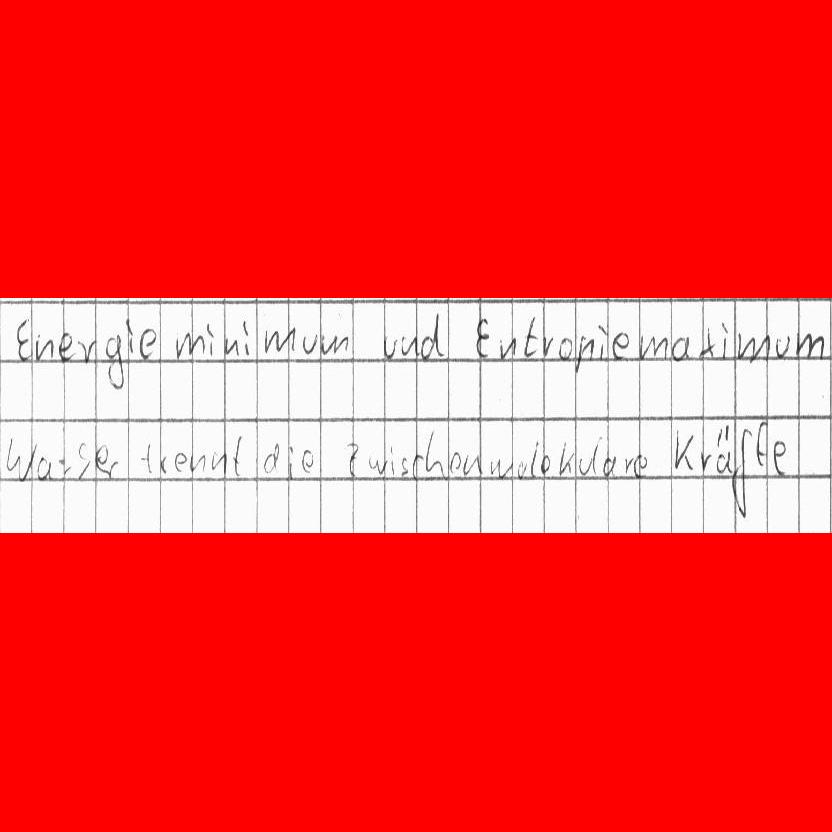 Energieminimum und Entropiemaximum
Wasser trennt die zwischenmolekulare Kräfte